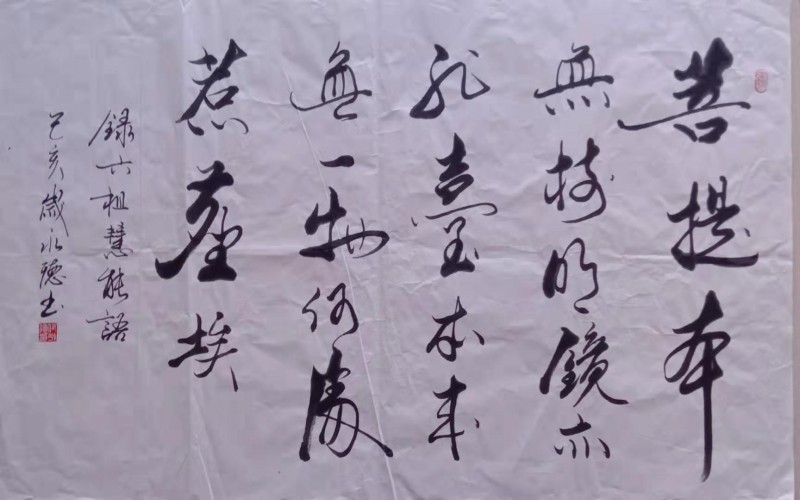 菩提本
無樹明鏡亦
非臺本来
無一物何處
惹塵埃
録六祖慧能語
己亥歲永德书